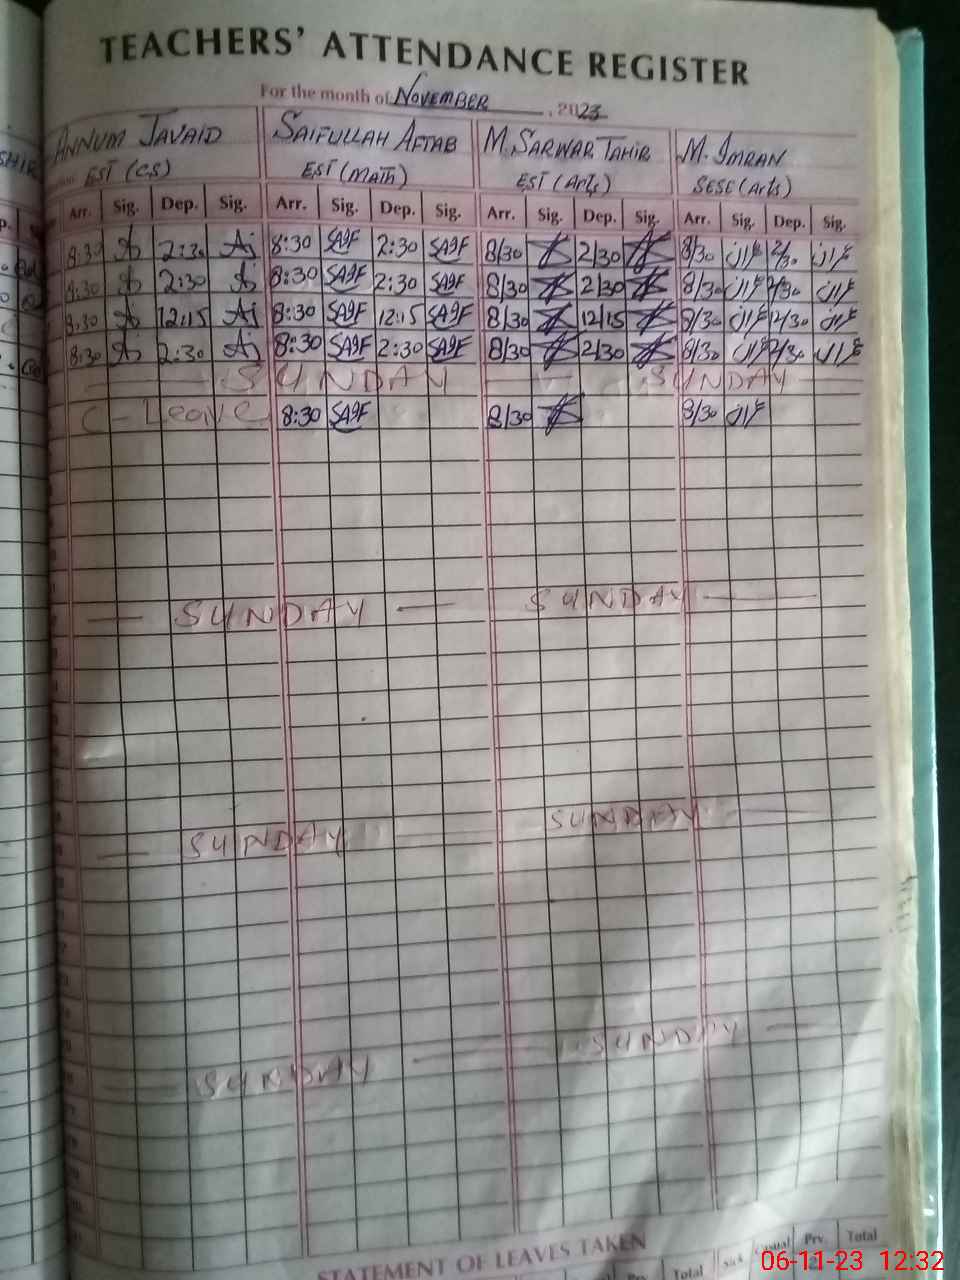 TEACHERS' ATTENDANCE REGISTER
For the month of November, 2023
Annum Javaid Saifullah Aftab M. Sarwar Tahir M. Imran
EST (CS) EST (Math) EST (Arts) SESE (Arts)
Arr. Sig. Dep. Sig. Arr. Sig. Dep. Sig. Arr. Sig. Dep. Sig. Arr. Sig. Dep. Sig.
8:30 2:30 8:30 SAIF 2:30 SAIF 8/30 2/30 8/30 2/30
8:30 2:30 8:30 SAIF 2:30 SAIF 8/30 2/30 8/30 2/30
8:30 12:15 8:30 SAIF 12:15 SAIF 8/30 12/15 8/30 12/30
8:30 2:30 8:30 SAIF 2:30 SAIF 8/30 2/30 8/30 2/30
SUNDAY SUNDAY
C - Leave 8:30 SAIF 8/30 8/30
SUNDAY SUNDAY
SUNDAY SUNDAY
SUNDAY SUNDAY
STATEMENT OF LEAVES TAKEN
Prv. Total Sick Casual Prv. Total
06-11-23 12:32